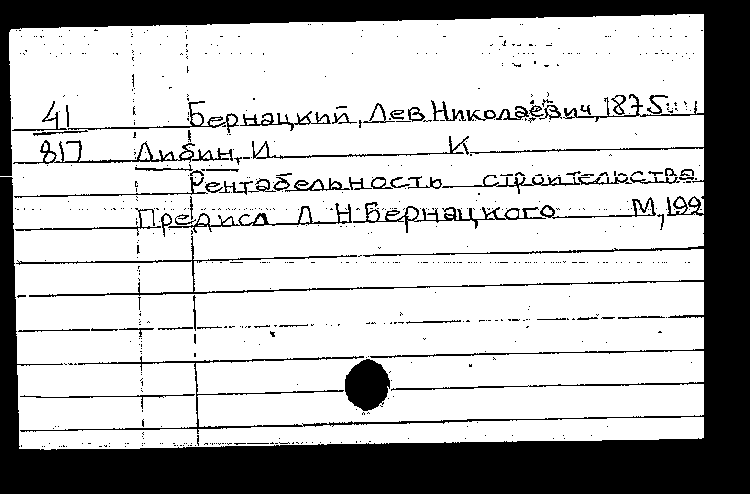 41 Бернацкий, Лев Николаевич, 1875
817 Либин, И К
Рентабельность строительства
Предисл Л Н Бернацкого М, 192